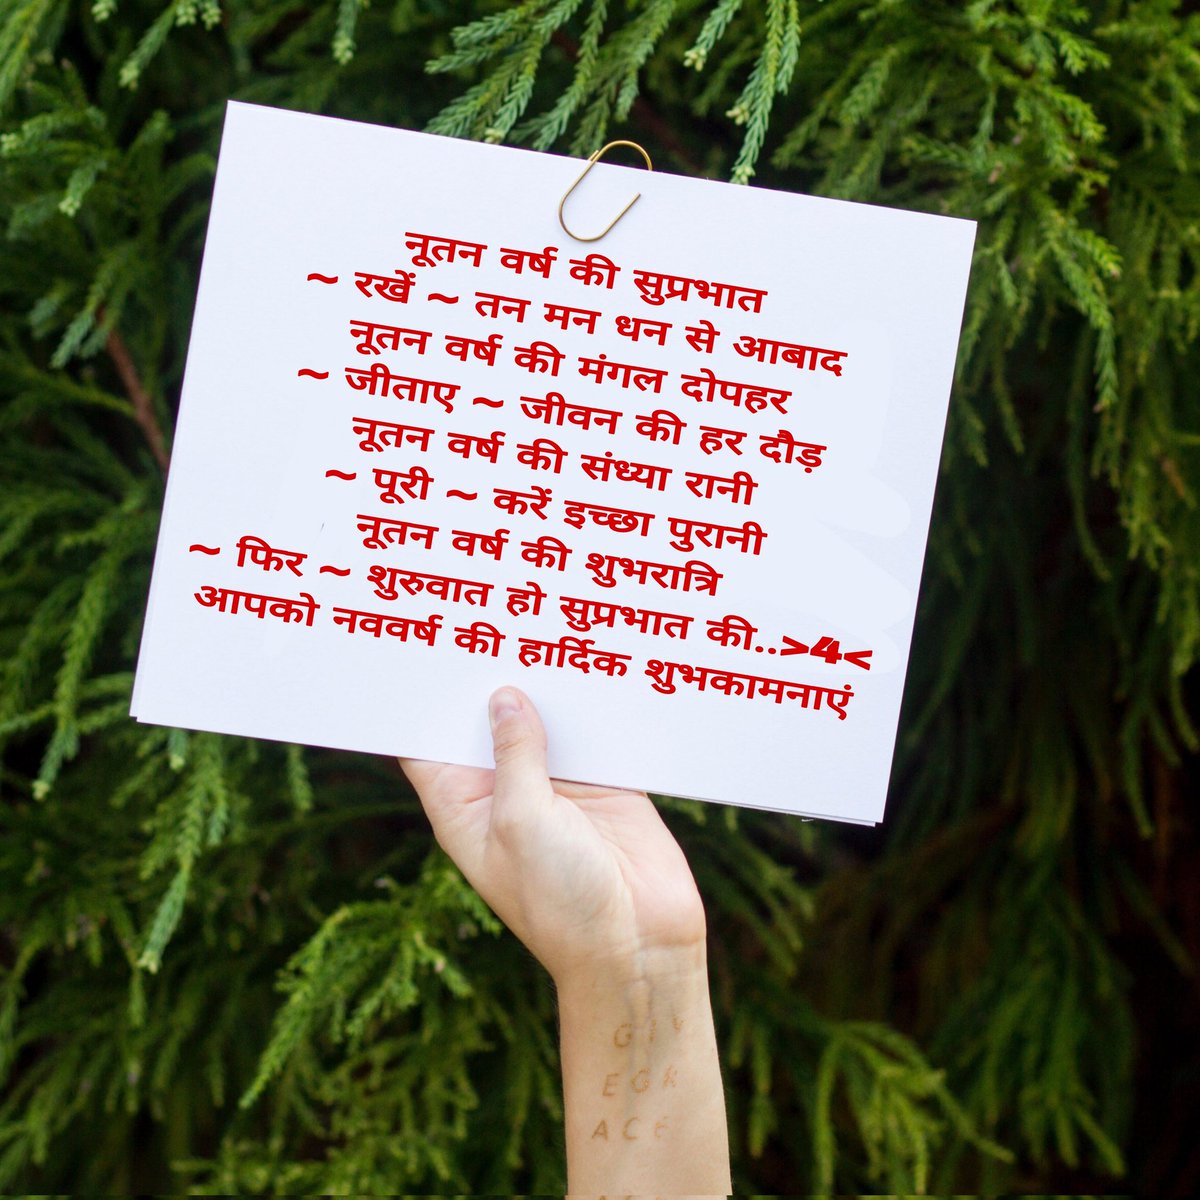 नूतन वर्ष की सुप्रभात
~ रखें ~ तन मन धन से आबाद
नूतन वर्ष की मंगल दोपहर
~ जीताए ~ जीवन की हर दौड़
नूतन वर्ष की संध्या रानी
~ पूरी ~ करें इच्छा पुरानी
नूतन वर्ष की शुभरात्रि
~ फिर ~ शुरुवात हो सुप्रभात की..>4<
आपको नववर्ष की हार्दिक शुभकामनाएं
GIV
EGR
ACE